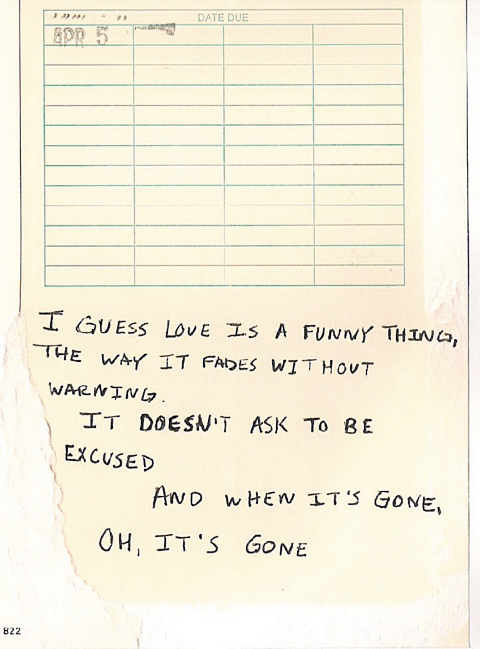 DATE DUE
APR 5
I GUESS LOVE IS A FUNNY THING,
THE WAY IT FADES WITHOUT
WARNING.
IT DOESN'T ASK TO BE
EXCUSED
AND WHEN IT'S GONE,
OH, IT'S GONE
822